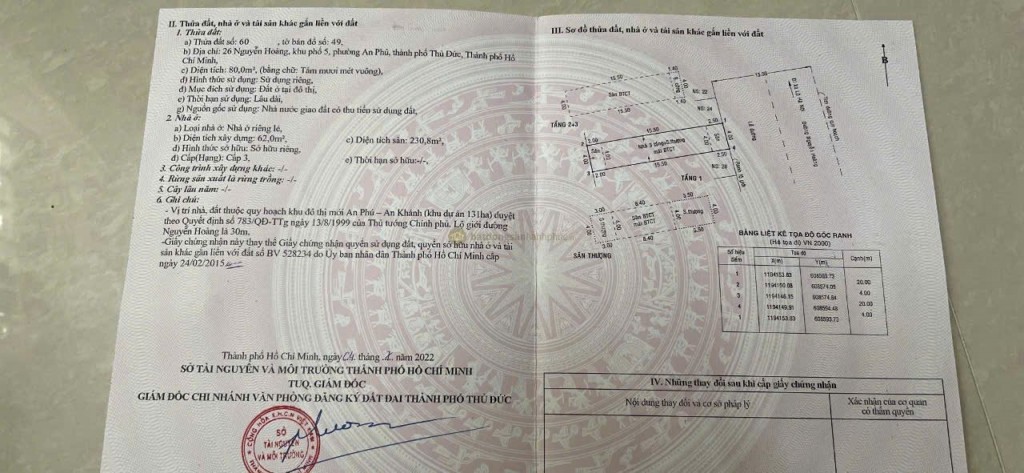 II. Thửa đất, nhà ở và tài sản khác gắn liền với đất
1. Thửa đất:
a) Thửa đất số: 60 , tờ bản đồ số: 49,
b) Địa chỉ: 26 Nguyễn Hoàng, khu phố 5, phường An Phú, thành phố Thủ Đức, Thành phố Hồ
Chí Minh,
c) Diện tích: 80,0m², (bằng chữ: Tám mươi mét vuông),
d) Hình thức sử dụng: Sử dụng riêng,
đ) Mục đích sử dụng: Đất ở tại đô thị,
e) Thời hạn sử dụng: Lâu dài,
g) Nguồn gốc sử dụng: Nhà nước giao đất có thu tiền sử dụng đất,
2. Nhà ở:
a) Loại nhà ở: Nhà ở riêng lẻ,
b) Diện tích xây dựng: 62,0m², c) Diện tích sàn: 230,8m²,
d) Hình thức sở hữu: Sở hữu riêng,
đ) Cấp(Hạng): Cấp 3, e) Thời hạn sở hữu:-/-,
3. Công trình xây dựng khác: -/-
4. Rừng sản xuất là rừng trồng: -/-
5. Cây lâu năm: -/-
6. Ghi chú:
- Vị trí nhà, đất thuộc quy hoạch khu đô thị mới An Phú – An Khánh (khu dự án 131ha) duyệt
theo Quyết định số 783/QĐ-TTg ngày 13/8/1999 của Thủ tướng Chính phủ. Lộ giới đường
Nguyễn Hoàng là 30m.
-Giấy chứng nhận này thay thế Giấy chứng nhận quyền sử dụng đất, quyền sở hữu nhà ở và tài
sản khác gắn liền với đất số BV 528234 do Ủy ban nhân dân Thành phố Hồ Chí Minh cấp
ngày 24/02/2015
Thành phố Hồ Chí Minh, ngày 04 tháng 2 năm 2022
SỞ TÀI NGUYÊN VÀ MÔI TRƯỜNG THÀNH PHỐ HỒ CHÍ MINH
TUQ. GIÁM ĐỐC
GIÁM ĐỐC CHI NHÁNH VĂN PHÒNG ĐĂNG KÝ ĐẤT ĐAI THÀNH PHỐ THỦ ĐỨC
SỞ
TÀI NGUYÊN
VÀ MÔI TRƯỜNG
III. Sơ đồ thửa đất, nhà ở và tài sản khác gắn liền với đất
B
15.50
Sàn BTCT
15.50
TẦNG 2+3
15.50
mái BTCT
15.50
TẦNG 1
Lề đường
Đường Nguyễn Hoàng
3.00 8.40 3.50
Sàn BTCT
mái BTCT
S.thượng
SÂN THƯỢNG
BẢNG LIỆT KÊ TỌA ĐỘ GÓC RANH
(Hệ tọa độ VN 2000)
Số hiệu điểm Tọa độ Cạnh(m)
X(m) Y(m)
1
2 20.00
3 4.00
4 20.00
1 4.00
IV. Những thay đổi sau khi cấp giấy chứng nhận
Nội dung thay đổi và cơ sở pháp lý
Xác nhận của cơ quan
có thẩm quyền